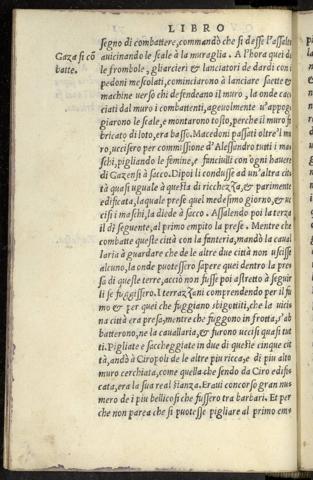 LIBRO
segno di combattere, commandò che si desse l'assalto
Gaza si cõ
batte.
avicinando le scale à la muraglia. A l'hora quei de
le frombole, gli arcieri & lanciatori de dardi con i
pedoni mescolati, cominciarono à lanciare saette &
machine verso chi defendeano il muro, la onde cac
ciati dal muro i combattenti, agevolmente v'appog
giarono le scale, e montarono tosto, perche il muro fa
bricato di loto, era basso. Macedoni passati oltre'l mu
ro, uccisero per commissione d'Alessandro tutti i ma
schi, pigliando le femine, e fanciulli con ogni havere
di Gazensi à sacco. Dipoi li condusse ad un'altra cit
tà quasi uguale à questa di ricchezza, & parimente
edificata, la quale prese quel medesimo giorno, & uc
cisi i maschi, la diede à sacco. Assalendo poi la terza
il dì seguente, al primo empito la prese. Mentre che
combatte queste città con la fanteria, mandò la caval
laria à guardare che de le altre due città non uscisse
alcuno, la onde puotessero sapere quei dentro la pre
sa di queste terre, acciò non fusse poi astretto à segui
li se fuggissero. I terrazzani comprendendo per il fu
mo & per quei che fuggiano sbigottiti, che la vici
na città era presa, mentre che fuggono in frotta, s'ab
batterono, ne la cavallaria, & furono uccisi quasi tut
ti. Pigliate e saccheggiate in due dì queste cinque cit
tà, andò à Ciropoli de le altre piu ricca, e di piu alto
muro cerchiata, come quella che sendo da Ciro edifi
cata, era la sua real stanza. Eravi concorso gran nu
mero de i piu bellicosi che fussero tra barbari. Et per
che non parea che si puotesse pigliare al primo em